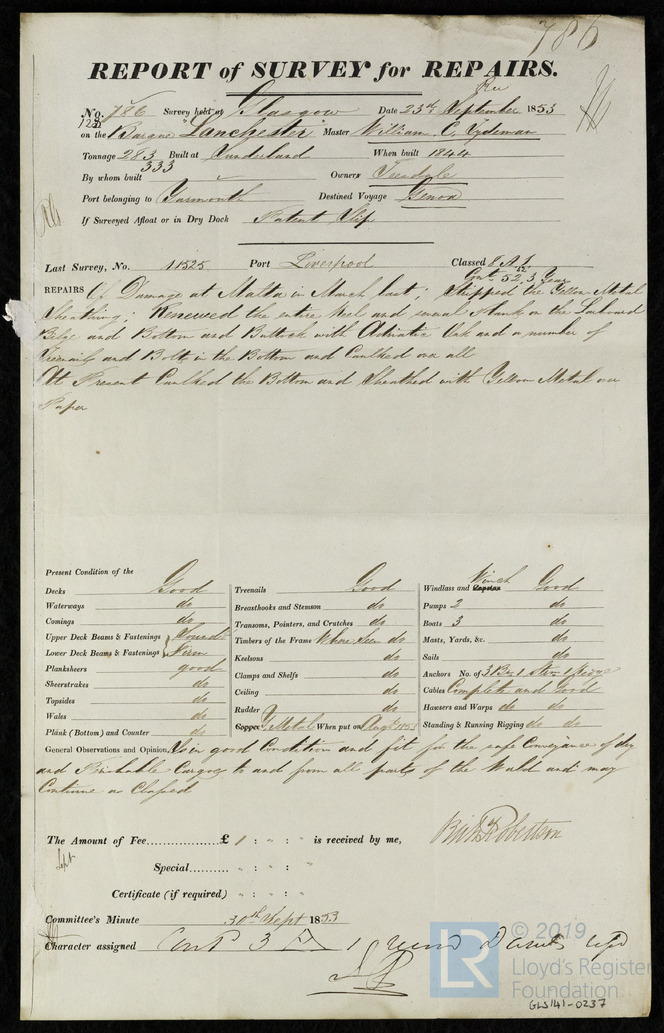 786
REPORT of SURVEY for REPAIRS.
No. 786 Survey held at Glasgow Date 23rd September 1853
on the Barque "Lanchester" Master William C. Tydeman
Tonnage 283 Built at Sunderland When built 1844
333
By whom built Owners
Port belonging to Yarmouth Destined Voyage Genoa
If Surveyed Afloat or in Dry Dock Patent Slip
Last Survey, No. 11525 Port Liverpool Classed 8 A 1
Cont. 52, 3 Year
REPAIRS Of Damage at Malta in March last; Stripped the Yellow Metal
Sheathing; Renewed the entire Keel and several Planks on the Larboard
Bilge and Bottom and Buttock with Adriatic Oak and a number of
Treenails and Bolts in the Bottom and Caulked all
At Present Caulked the Bottom and Sheathed with Yellow Metal over
Paper
Present Condition of the
Decks Good
Waterways do
Comings do
Upper Deck Beams & Fastenings Sound &
Lower Deck Beams & Fastenings Firm
Planksheers good
Sheerstrakes do
Topsides do
Wales do
Plank (Bottom) and Counter do
Treenails Good
Breasthooks and Stemson do
Transoms, Pointers, and Crutches do
Timbers of the Frame Where Seen do
Keelsons do
Clamps and Shelfs do
Ceiling do
Rudder do
Copper Y Metal When put on Augt 1853
Windlass and Capstan Winch Good
Pumps 2 do
Boats 3 do
Masts, Yards, &c. do
Sails do
Anchors No. of 3 Br, 1 Strm, 1
Cables Complete and Good
Hawsers and Warps do do
Standing & Running Rigging do do
General Observations and Opinion, Is in good Condition and fit for the safe Conveyance of dry
and Perishable Cargoes to and from all parts of the World and may
Continue as Classed
The Amount of Fee................£ 1 : " : " is received by me,
Robertson
Special..........  " : " : "
Certificate (if required) " : " : "
Committee's Minute 30th Sept 1853
Character assigned Cont 3
© 2019
LR
Lloyd's Register
Foundation
GLS141-0237